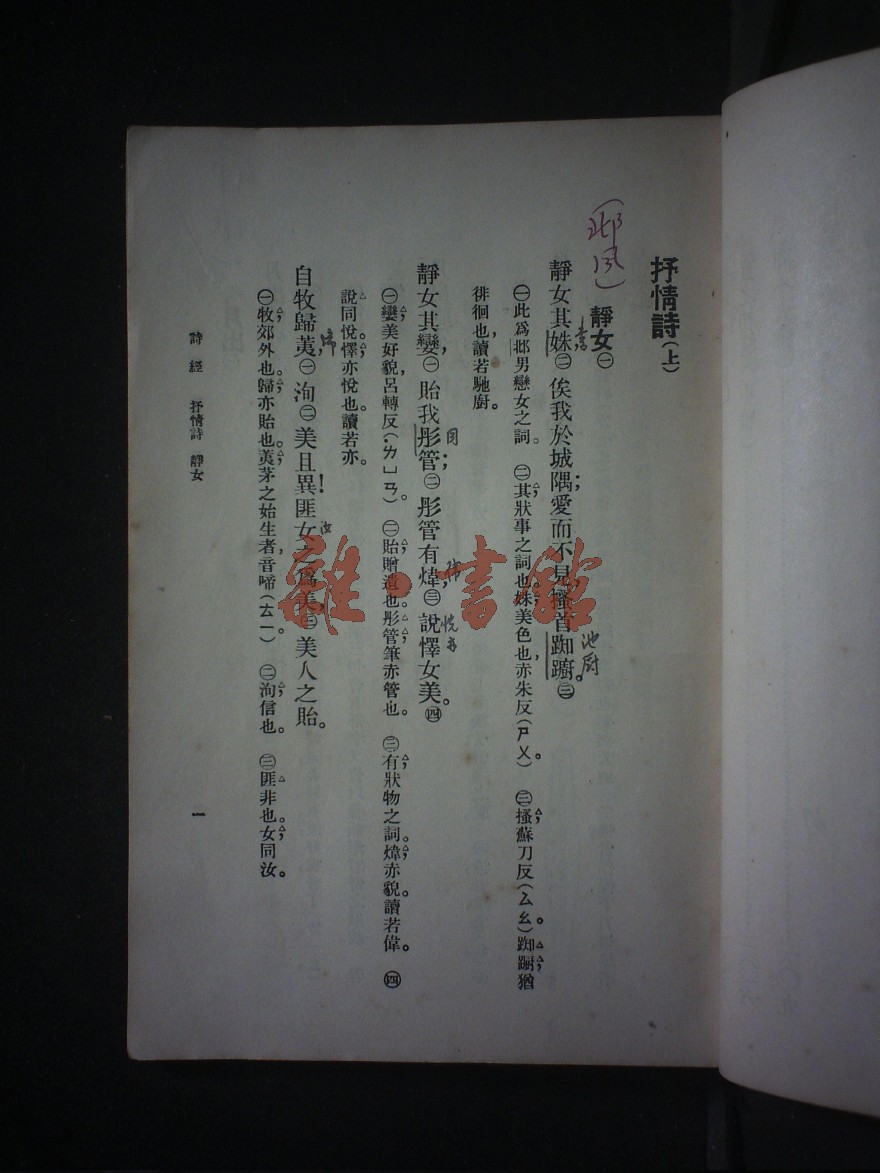 抒情詩(上)
(邶風)
靜女㊀
靜女其姝,㊁俟我於城隅;愛而不見,搔首踟躕。㊂
書
池厨
㊀此爲邶男戀女之詞。 ㊁其,狀事之詞也。姝,美色也,赤朱反(ㄕㄨ)。 ㊂搔,蘇刀反(ㄙㄠ)。踟躕,猶
徘徊也,讀若馳廚。
靜女其孌,㊀貽我彤管;㊁彤管有煒,㊂說懌女美。㊃
㊀孌,美好貌,呂轉反(ㄌㄩㄢ)。 ㊁貽,贈遺也。彤管,筆赤管也。 ㊂有,狀物之詞。煒,赤貌。讀若偉。 ㊃
說同悅。懌,亦悅也。讀若亦。
自牧歸荑,㊀洵㊁美且異!匪女之爲美,㊂美人之貽。
汝
㊀牧,郊外也。歸,亦貽也。荑,茅之始生者,音啼(ㄊㄧ)。 ㊁洵,信也。 ㊂匪,非也。女同汝。
詩經 抒情詩 靜女
一
雜·書館